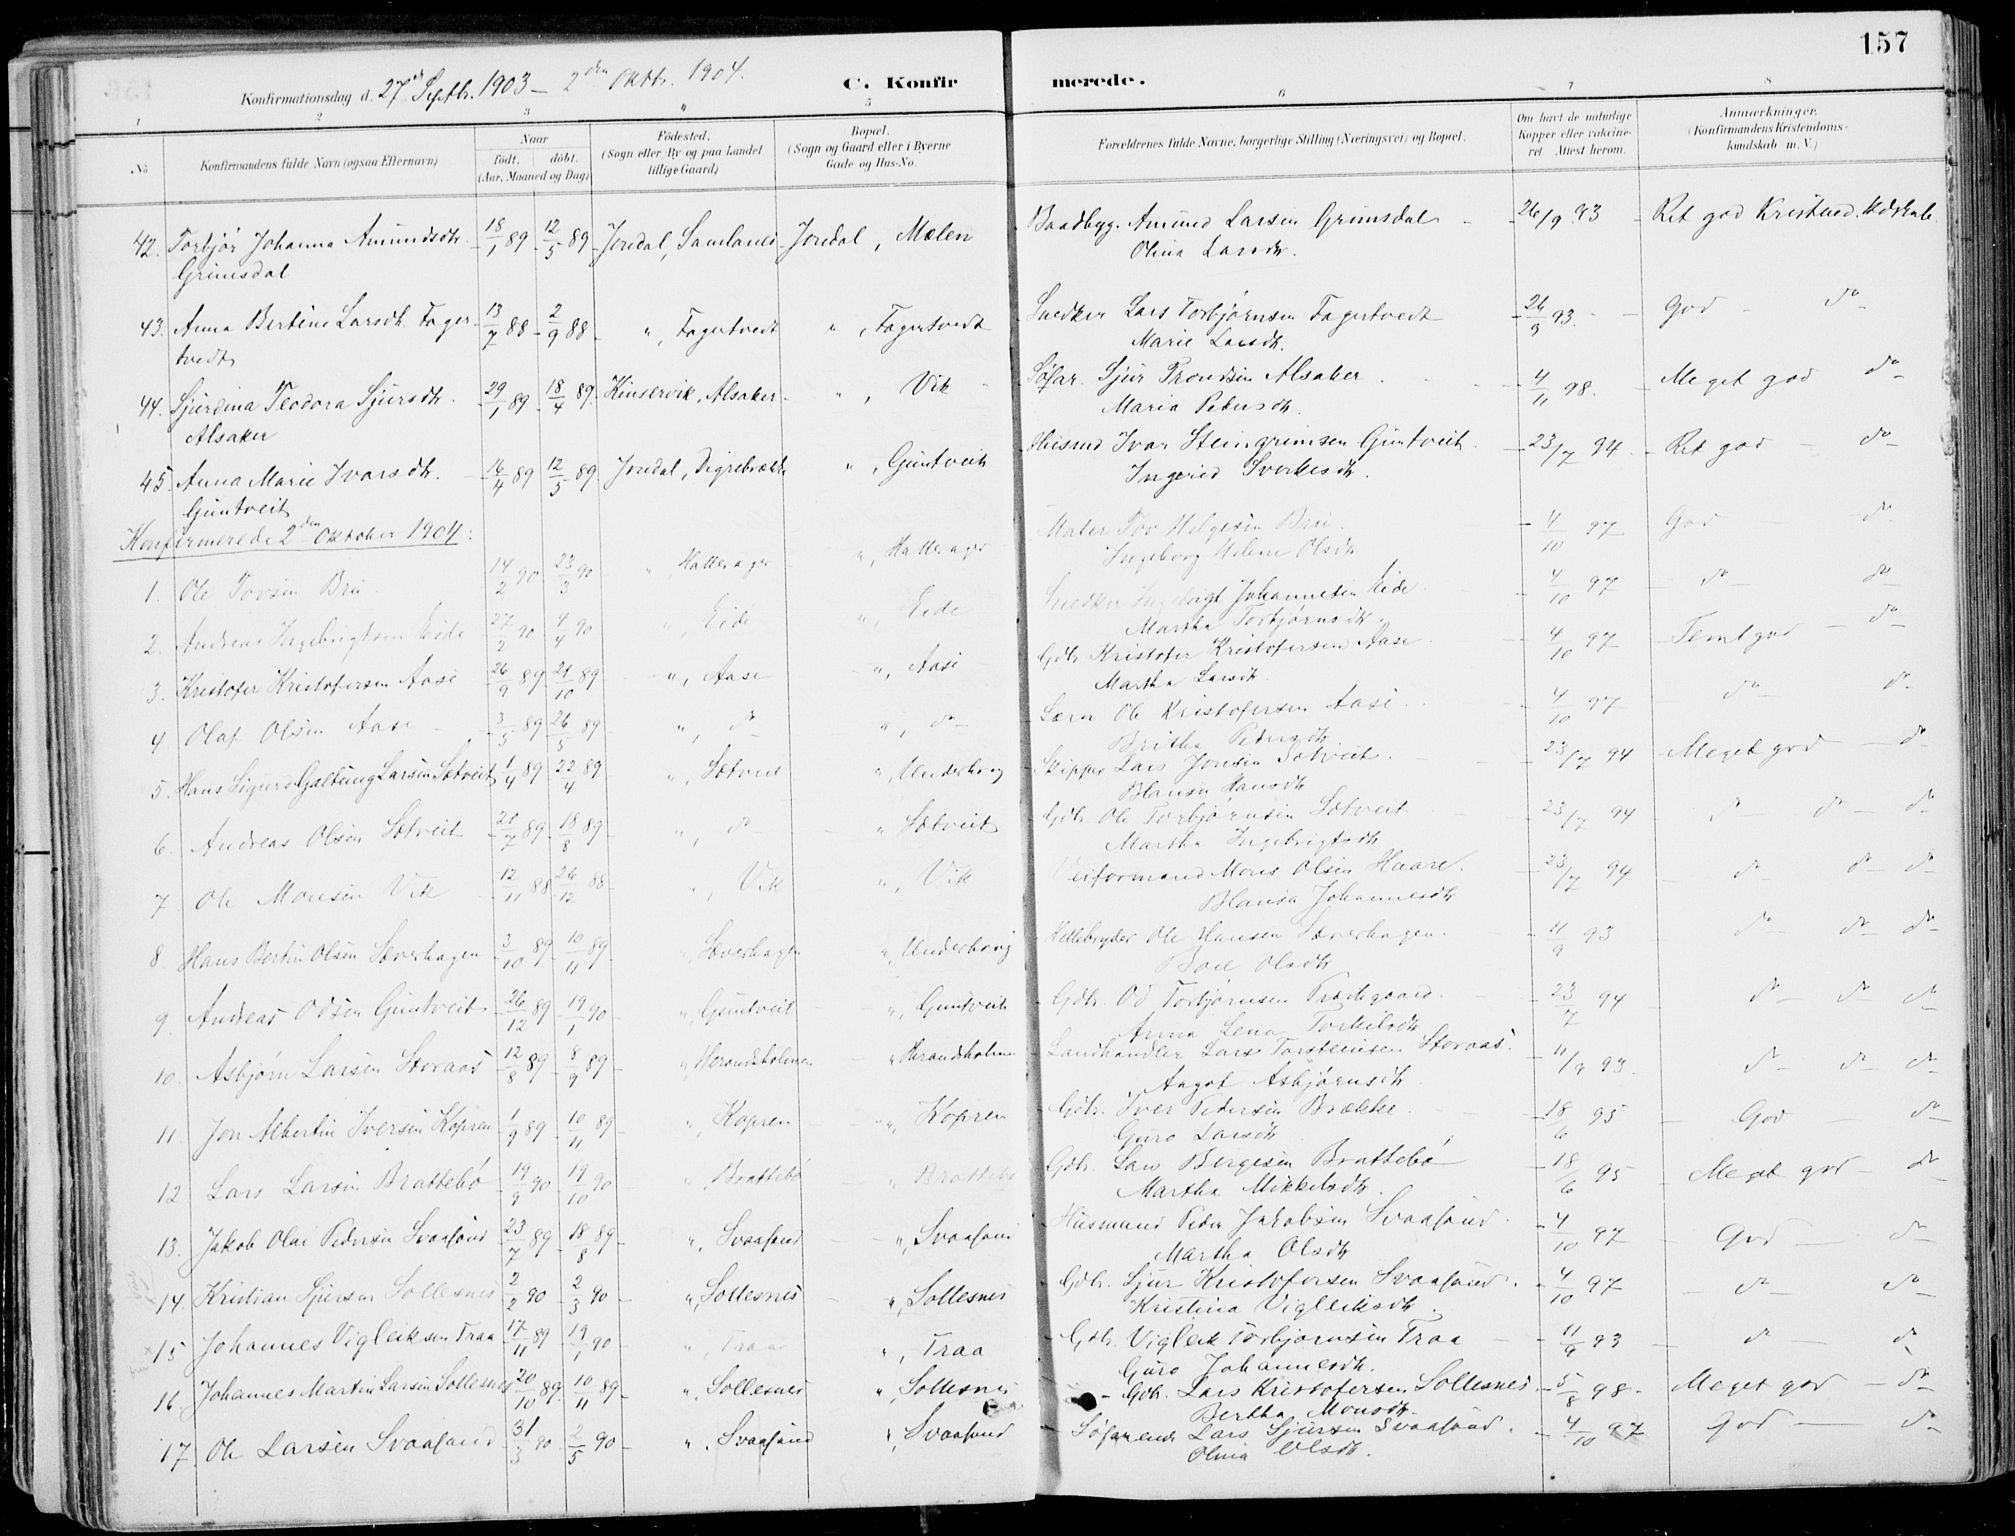 157
Konfirmationsdag d. 27d Septbr. 1903 – 2den Oktbr. 1904.
C. Konfirmerede.
1 2 3 4 5 6 7 8
No Konfirmandens fulde Navn (ogsaa Efternavn) Naar født. døbt. (Aar, Maaned og Dag) Fødested. (Sogn eller By og paa Landet tillige Gaard) Bopæl. (Sogn og Gaard eller i Byerne Gade og Hus-No. Forældrenes fulde Navne, borgerlige Stilling (Næringsvei) og Bopæl. Om havt de naturlige Kopper eller vaccineret Attest herom. Anmerkninger. (Konfirmandens Kristendomskundskab m. V.)
42. Torbjør Johanna Amundsdtr. Grimsdal 18/1 89 12/5 89 Jondal, Samlanes Jondal, Mælen Baadbyg. Amund Larsen Grimsdal Olina Larsdtr. 26/9 93 Ret god Kristend. Kdskab.
43. Anna Bertine Larsdtr. Fagertvedt 13/7 88 2/9 88 ", Fagertvedt ", Fagertvedt Snedker Lars Torbjørnsen Fagertvedt Marie Larsdtr. 26/9 93. God do
44. Sjurdina Teodora Sjursdtr. Alsaker 29/1 89 18/4 89. Kinservik, Alsaker ", Vik Søfar. Sjur Trondsen Alsaker Maria Pedersdtr. 4/11 98. Meget god do
45. Anna Marie Ivarsdtr. Guntveit 14/4 89 12/5 89 Jondal, Digrebrække ", Guntveit Husmd Ivar Steingrimsen Guntveit Ingerid Sverkesdtr. 23/7 94. Ret god do
Konfirmerede 2den Oktober 1904:
1. Ole Tovsen Bru 14/2 90 23/3 90 ", Hatterager ", Hatterager Maler Tov Helgesen Bru. Ingeborg Helene Olsdtr 4/10 97 God do
2. Andreas Ingebrigtsen Eide 27/2 90 4/4 90 ", Eide ", Eide Snedker Ingebrigt Johannesen Eide. Martha Torbjørnsdtr. 4/10 97 do do
3. Kristofer Kristofersen Aase 26/9 89 21/10 89 ", Aase ", Aase Gdbr. Kristofer Kristofersen Aase. Martha Larsdtr. 4/10 97 Temlgod do
4. Olaf Olsen Aase 3/5 89 26/5 89 ", do ", do Lærer Ole Kristofersen Aase Britha Pedersdtr 4/10 97 do do
5. Hans Sigurd Galtung Larsen Sætveit 1/4 89 22/4 89 ", Sætveit ", Underhoug Skipper Lars Jonsen Sætveit. Blansa Hansdtr 23/7 94 Meget god do
6. Andreas Olsen Sætveit 20/7 89 18/8 89 ", do " Sætveit Gdbr. Ole Torbjørnsen Sætveit Martha Ingebrigtsdtr 23/7 94 do do do
7. Ole Monsen Vik 12/11 88 26/12 88 ", Vik ", Vik Veiformand Mons Olsen Haare. Blansa Johannesdtr 23/7 94 do do do
8 Hans Bertin Olsen Sæverhagen 3/10 89 10/11 89 ", Sæverhagen ", Underhoug Hellebryder Ole Hansen Sæverhagen. Boel Olsdtr 11/9 93 do do do
9. Andreas Odsen Guntveit 26/12 89 19/1 90 ", Guntveit ", Guntveit Gdbr. Od Torbjørnsen Prestegaard. Anna Lena Torkilsdtr 23/7 94 do do do
10. Asbjørn Larsen Storaas 12/8 89 8/9 89 ", Herandsholmen ", Herandsholmen Landhandler Lars Torsteinsen Storaas. Angot Asbjørnsdtr. 11/9 93. do do do
11. Jon Albertin Iversen Kopren 1/9 89 10/11 89 ", Kopren ", Kopren Gdbr. Iver Pedersen Brække. Guro Larsdtr 18/6 95 God do
12 Lars Larsen Brattebø 14/9 90 19/10 90 ", Brattebø " Brattebø Gdbr. Lars Bergesen Brattebø Martha Mikkelsdtr. 18/6 95 Meget god do
13. Jakob Olai Pedersen Svaasand 23/7 89 18/8 89 ", Svaasand ", Svaasand Husmand Peder Jakobsen Svaasand. Martha Olsdtr 4/10 97 God do
14. Kristian Sjursen Sollesnes 2/2 90 2/3 90 ", Sollesnes ", Sollesnes Gdbr. Sjur Kristofersen Svaasand. Kristina Vigleiksdtr. 4/10 97 do do
15 Johannes Vigleiksen Traa 17/11 89 19/1 90 ", Traa ", Traa Gdbr. Vigleik Torbjørnsen Traa Guro Johannesdtr. 11/9 93 do do
16 Johannes Martin Larsen Sollesnes 20/10 89. 10/11 89 ", Sollesnes ", Sollesnes Gdbr. Lars Kristofersen Sollesnes Bertha Monsdtr. 5/8 98. Meget god do
17. Ole Larsen Svaasand 31/3 90 2/5 90 ", Svaasand ", Svaasand Søfarende Lars Sjursen Svaasand. Olina Olsdtr. 4/10 97 God do